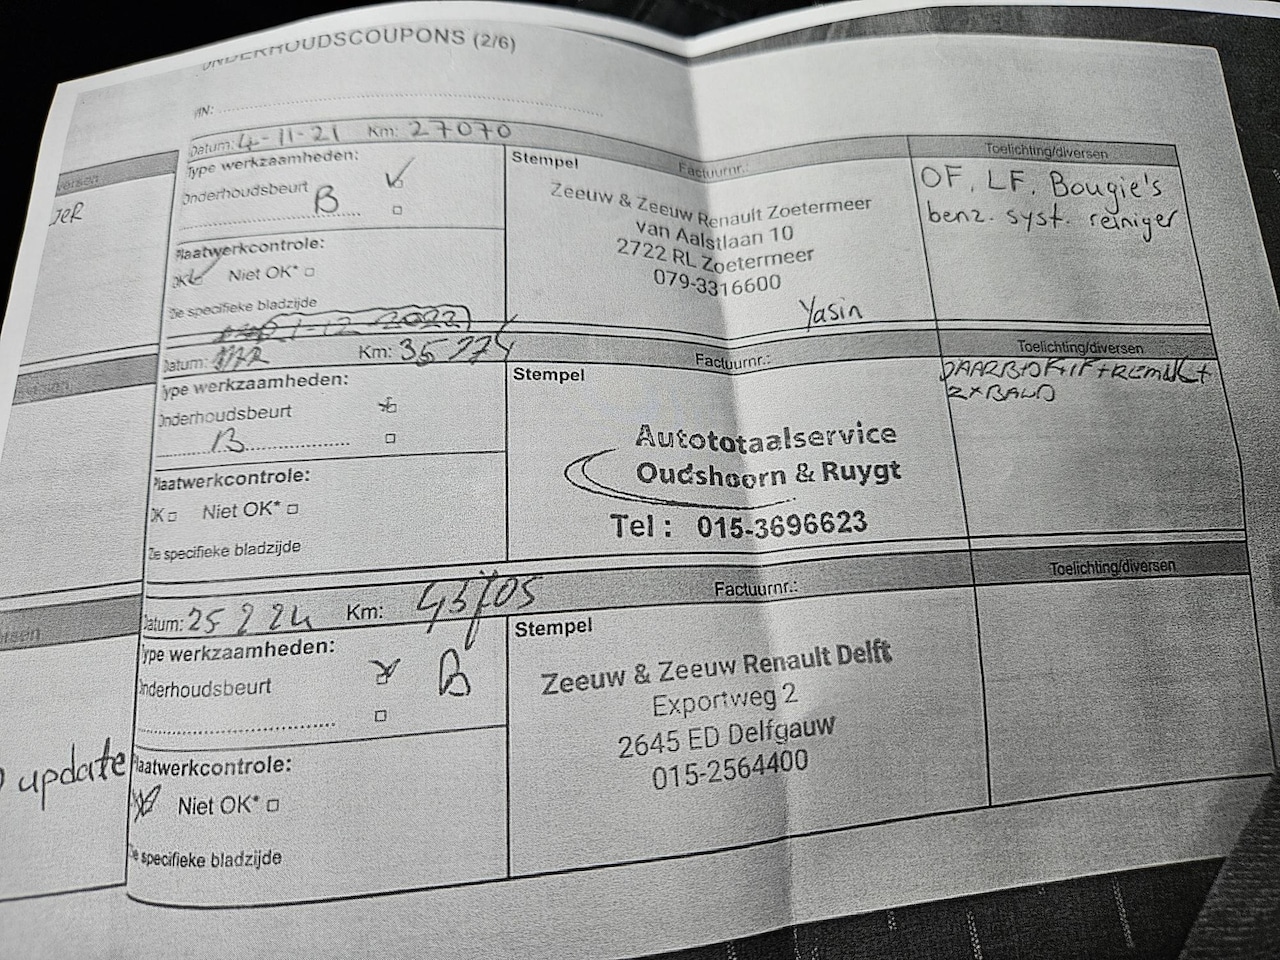 ONDERHOUDSCOUPONS (2/6)
IN:
Datum: 4-11-21 Km: 27070
Type werkzaamheden:
Onderhoudsbeurt
B
Plaatwerkcontrole:
OK Niet OK*
Zie specifieke bladzijde
Stempel
Factuurnr.:
Zeeuw & Zeeuw Renault Zoetermeer
van Aalstlaan 10
2722 RL Zoetermeer
079-3316600
Yasin
Toelichting/diversen
OF, LF, Bougie's
benz. syst. reiniger
1-12-2022
Datum: Km: 35774
Type werkzaamheden:
Onderhoudsbeurt
B
Plaatwerkcontrole:
OK Niet OK*
Zie specifieke bladzijde
Stempel
Factuurnr.:
Autototaalservice
Oudshoorn & Ruygt
Tel : 015-3696623
Toelichting/diversen
2x BAND
Datum: 25 2 24 Km: 45705
Type werkzaamheden:
Onderhoudsbeurt
B
Plaatwerkcontrole:
Niet OK*
Zie specifieke bladzijde
Stempel
Factuurnr.:
Zeeuw & Zeeuw Renault Delft
Exportweg 2
2645 ED Delfgauw
015-2564400
Toelichting/diversen
update